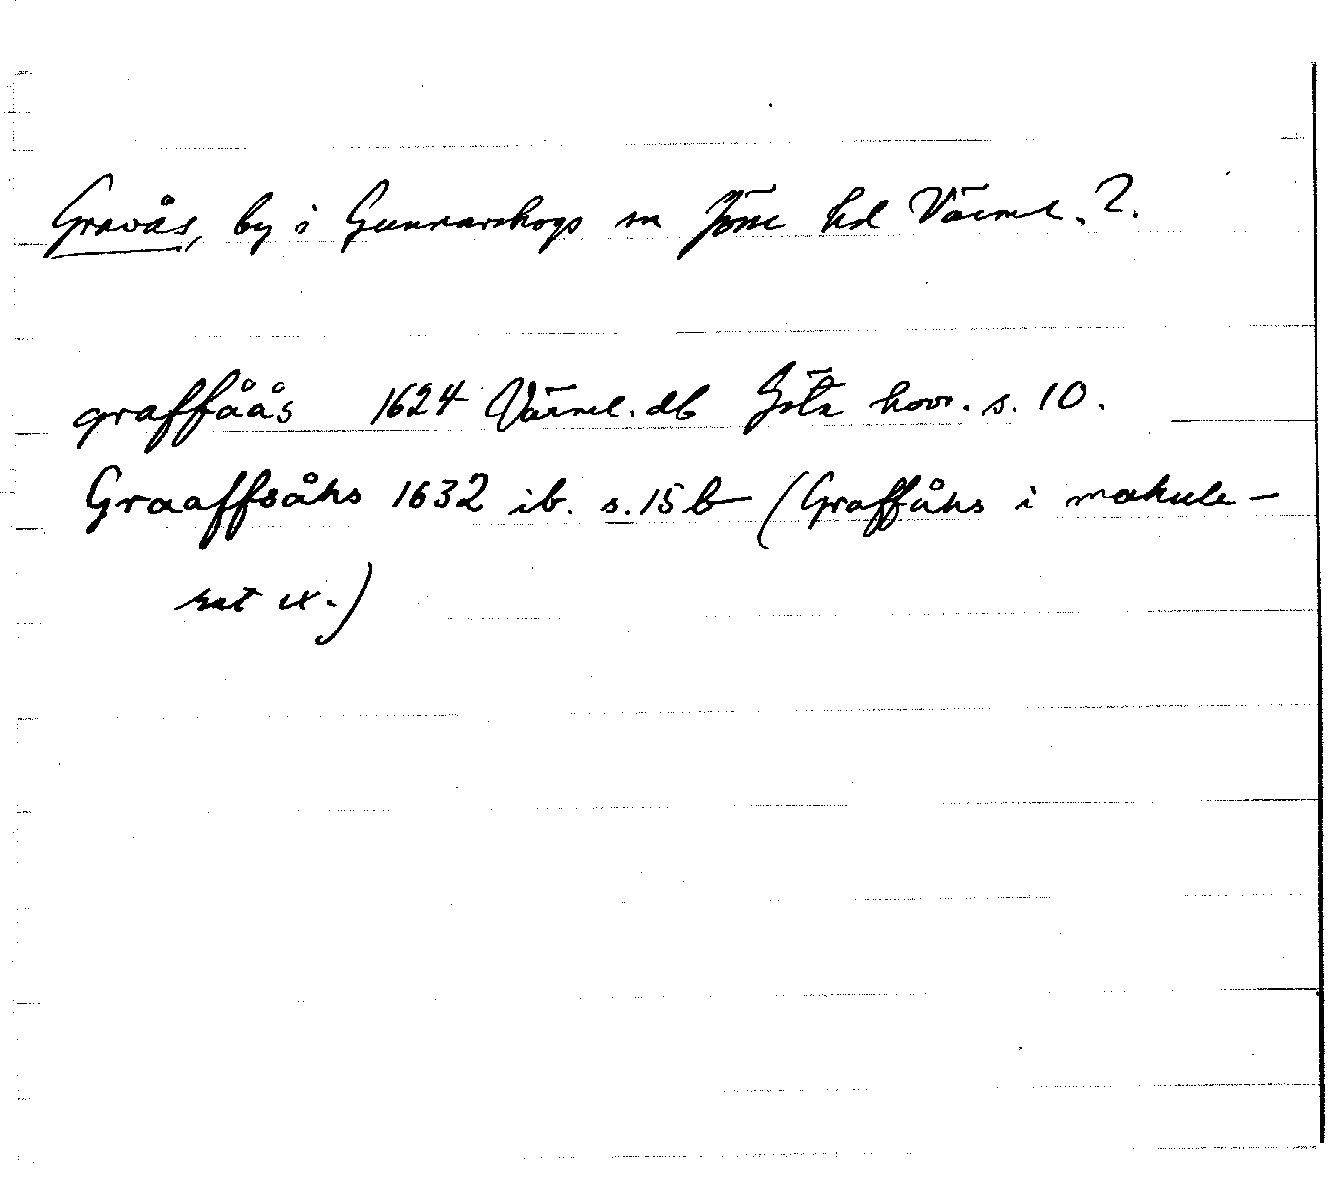 Gravås, by i Gunnarskogs sn Jöse hd Värml. ?.
graffåås 1624 Värml. db Göta hovr. s. 10.
Graaffsåhs 1632 ib. s. 15 b (Graffåhs i makule-
rat ex.)